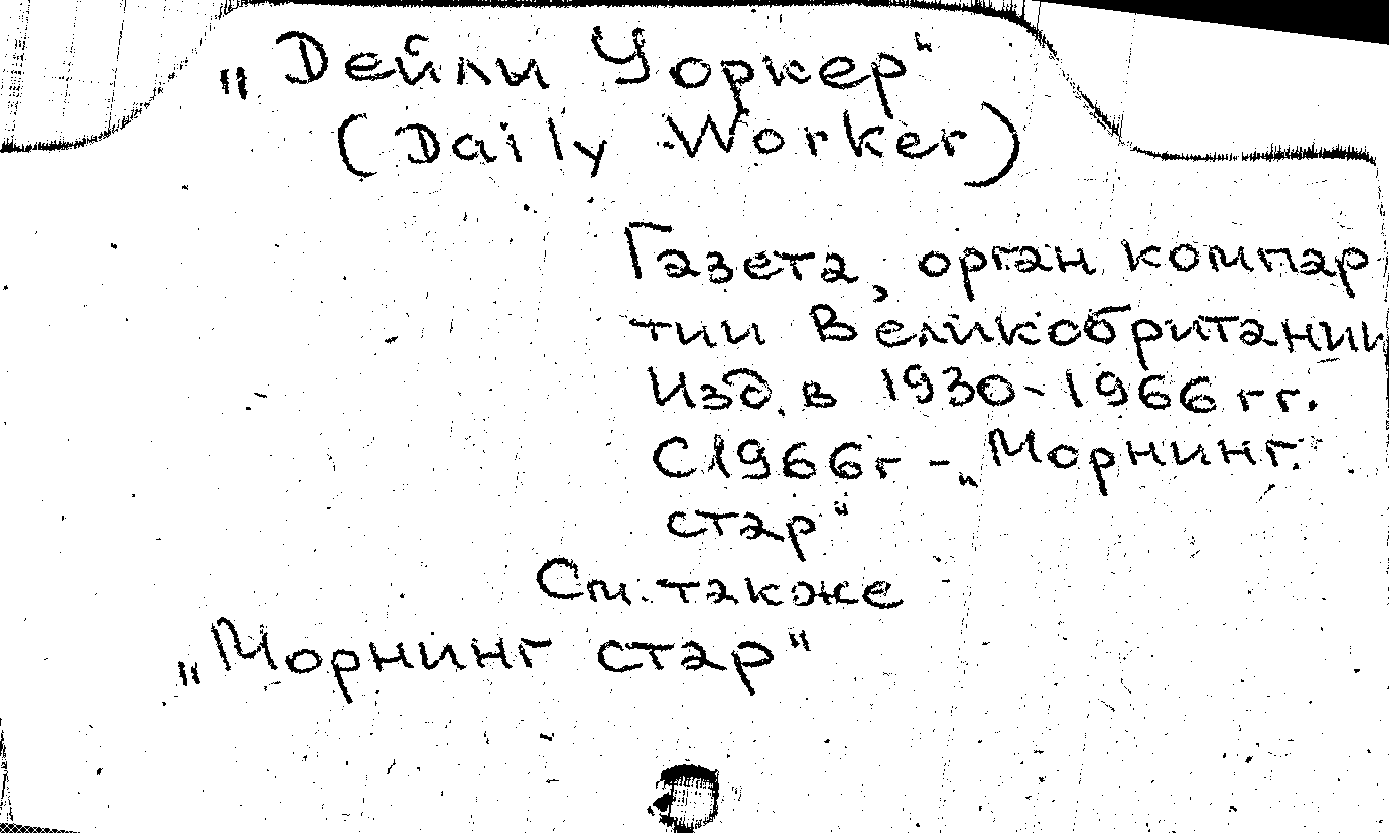 „Дейли Уоркер“
(Daily Worker)
Газета, орган компар
тии Великобритании
Изд. в 1930-1966 гг.
С 1966г - „Морнинг
стар“
См. также
„Морнинг стар“